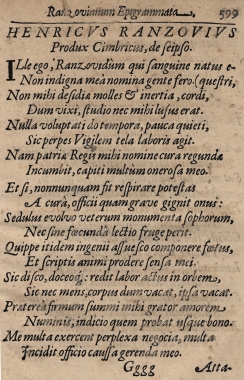 Ranzovinium Epigrammata, 599
HENRICVS RANZOVIVS
Produx Cimbricus, de seipso.
ILle ego, Ranzovidûm qui sanguine natus e-
Non indigna meâ nomina gente fero. (questri,
Non mihi desidiæ molles & inertia, cordi,
Dum vixi, studio nec mihi lusus erat.
Nulla voluptati do tempora, pauca quieti,
Sic perpes Vigilem tela laboris agit.
Nam patriæ Regū mihi nomine cura regundæ
Incumbit, capiti multum onerosa meo.
Et si, nonnunquam fit respirare potestas
A curâ, officii quam grave gignit onus:
Sedulus evolvo veterum monumenta sophorum,
Nec sine fœcundâ lectio fruge perit.
Quippe itidem ingenii assuesco componere fœtus,
Et scriptis animi prodere sensa mei.
Sic disco, doceoq;: redit labor actus in orbem,
Sic nec mens, corpus dum vacat, ipsa vacat.
Prætereâ firmum summi mihi grator amorem
Numinis, indicio quem probat usque bono.
Me multa exercent perplexa negocia, multa
Incidit officio caussa gerenda meo.
Gggg Atta-